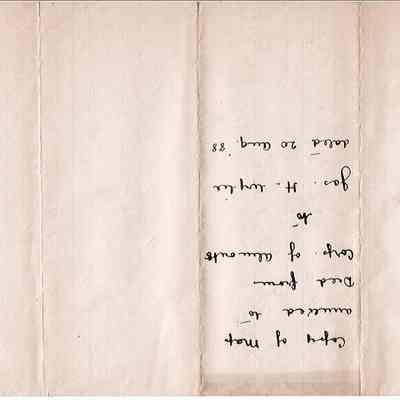 Copy of Map
annexed to
Deed from
Corp. of Almonte
to
Jas. H. Wylie
dated 20 Aug. '88